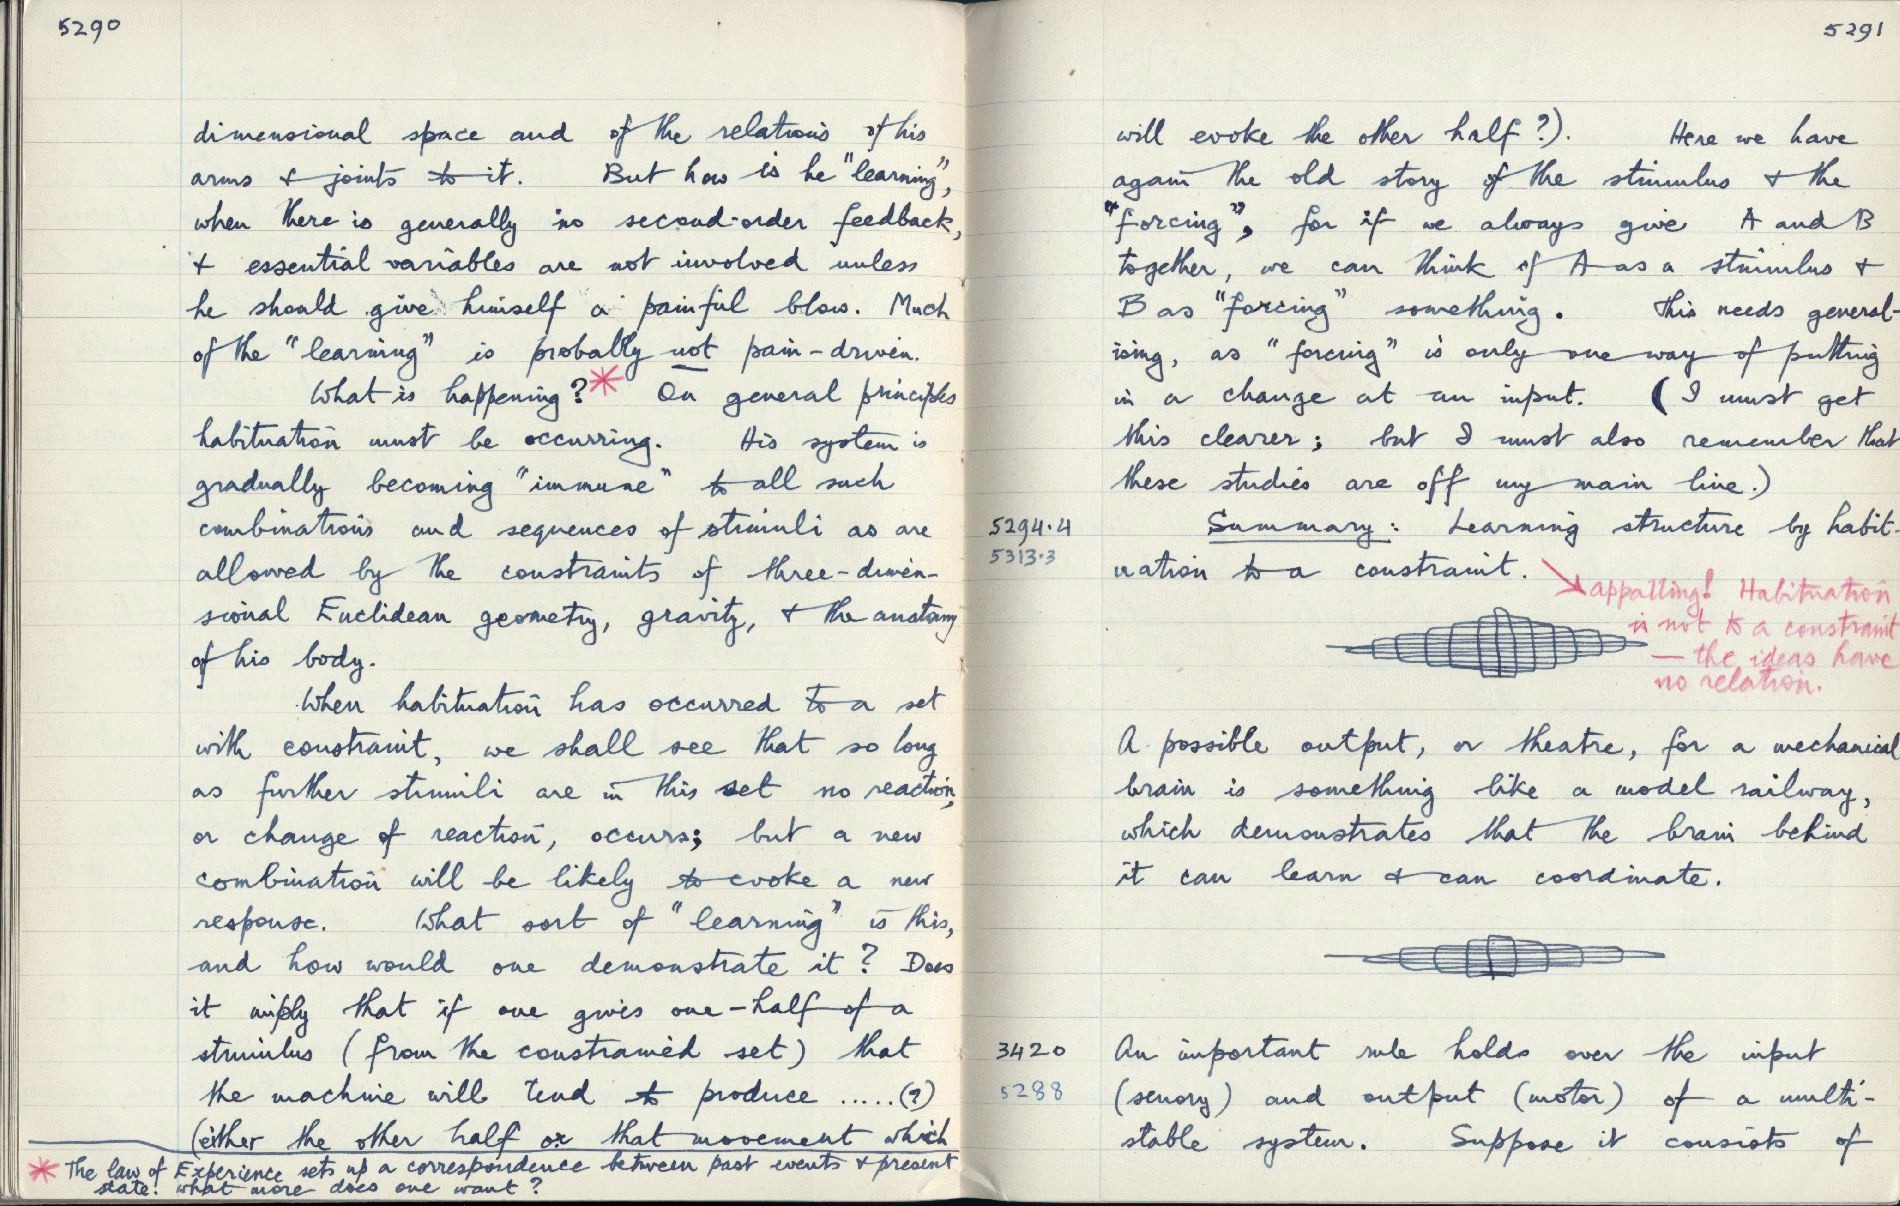 5290
dimensional space and of the relations of his
arms & joints to it. But how is he "learning",
when there is generally no second-order feedback,
& essential variables are not involved unless
he should give himself a painful blow. Much
of the "learning" is probably not pain-driven.
What is happening?* On general principles
habituation must be occurring. His system is
gradually becoming "immune" to all such
combinations and sequences of stimuli as are
allowed by the constraints of three-dimen-
sional Euclidean geometry, gravity, & the anatomy
of his body.
When habituation has occurred to a set
with constraint, we shall see that so long
as further stimuli are in this set no reaction,
or change of reaction, occurs; but a new
combination will be likely to evoke a new
response. What sort of "learning" is this,
and how would one demonstrate it? Does
it imply that if one gives one-half of a
stimulus (from the constrained set) that
the machine will tend to produce .....(?)
(either the other half or that movement which
* The law of Experience sets up a correspondence between past events & present
state! What more does one want?
5291
will evoke the other half?). Here we have
again the old story of the stimulus & the
"forcing", for if we always give A and B
together, we can think of A as a stimulus &
B as "forcing" something. This needs general-
ising, as "forcing" is only one way of putting
in a change at an input. (I must get
this clearer; but I must also remember that
these studies are off my main line.)
5294.4
5313.3
Summary: Learning structure by habit-
uation to a constraint.
appalling! Habituation
is not to a constraint
— the ideas have
no relation.
A possible output, or theatre, for a mechanical
brain is something like a model railway,
which demonstrates that the brain behind
it can learn & can coordinate.
3420
5288
An important rule holds over the input
(sensory) and output (motor) of a multi-
stable system. Suppose it consists of